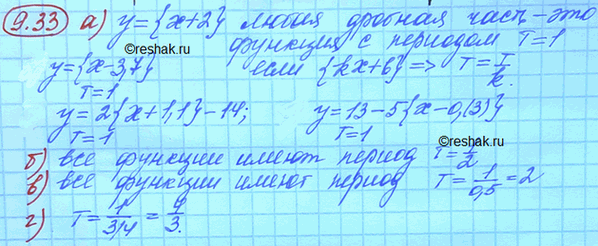 9.33 а) y={x+2} любая дробная часть – это
©reshak.ru функция с периодом T=1
y={x-3,7} если {kx+b} => T=T/k.
T=1
y=2{x+1,1}-14; y=13-5{x-0,(3)}
T=1 T=1
б) все функции имеют период T=1/2
в) все функции имеют период T=1/0,5=2
г) T=1/3/4=4/3. ©reshak.ru